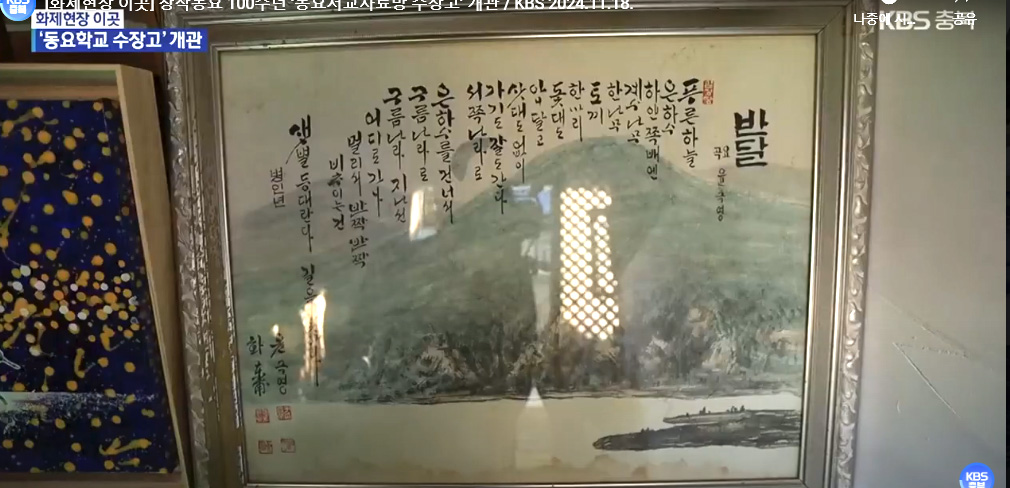 [화제현장 이곳] 창작동요 100주년 '동요학교자료방 수장고' 개관 / KBS 2024.11.18.
화제현장 이곳
'동요학교 수장고' 개관
나중에
공유
KBS 충북
반달
윤극영
푸른하늘
은하수
하얀쪽배엔
계수나무
한나무
토끼
한마리
돛대도
아니달고
삿대도없이
가기도잘도간다
서쪽나라로
은하수를건너서
구름나라로
구름나라지나선
어디로가나
멀리서반짝반짝
비추이는건
샛별등대란다
병인년
윤극영
KBS
충북